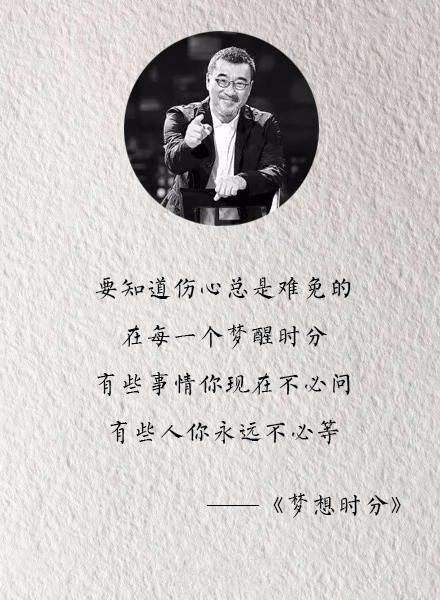 要知道伤心总是难免的
在每一个梦醒时分
有些事情你现在不必问
有些人你永远不必等
——《梦想时分》